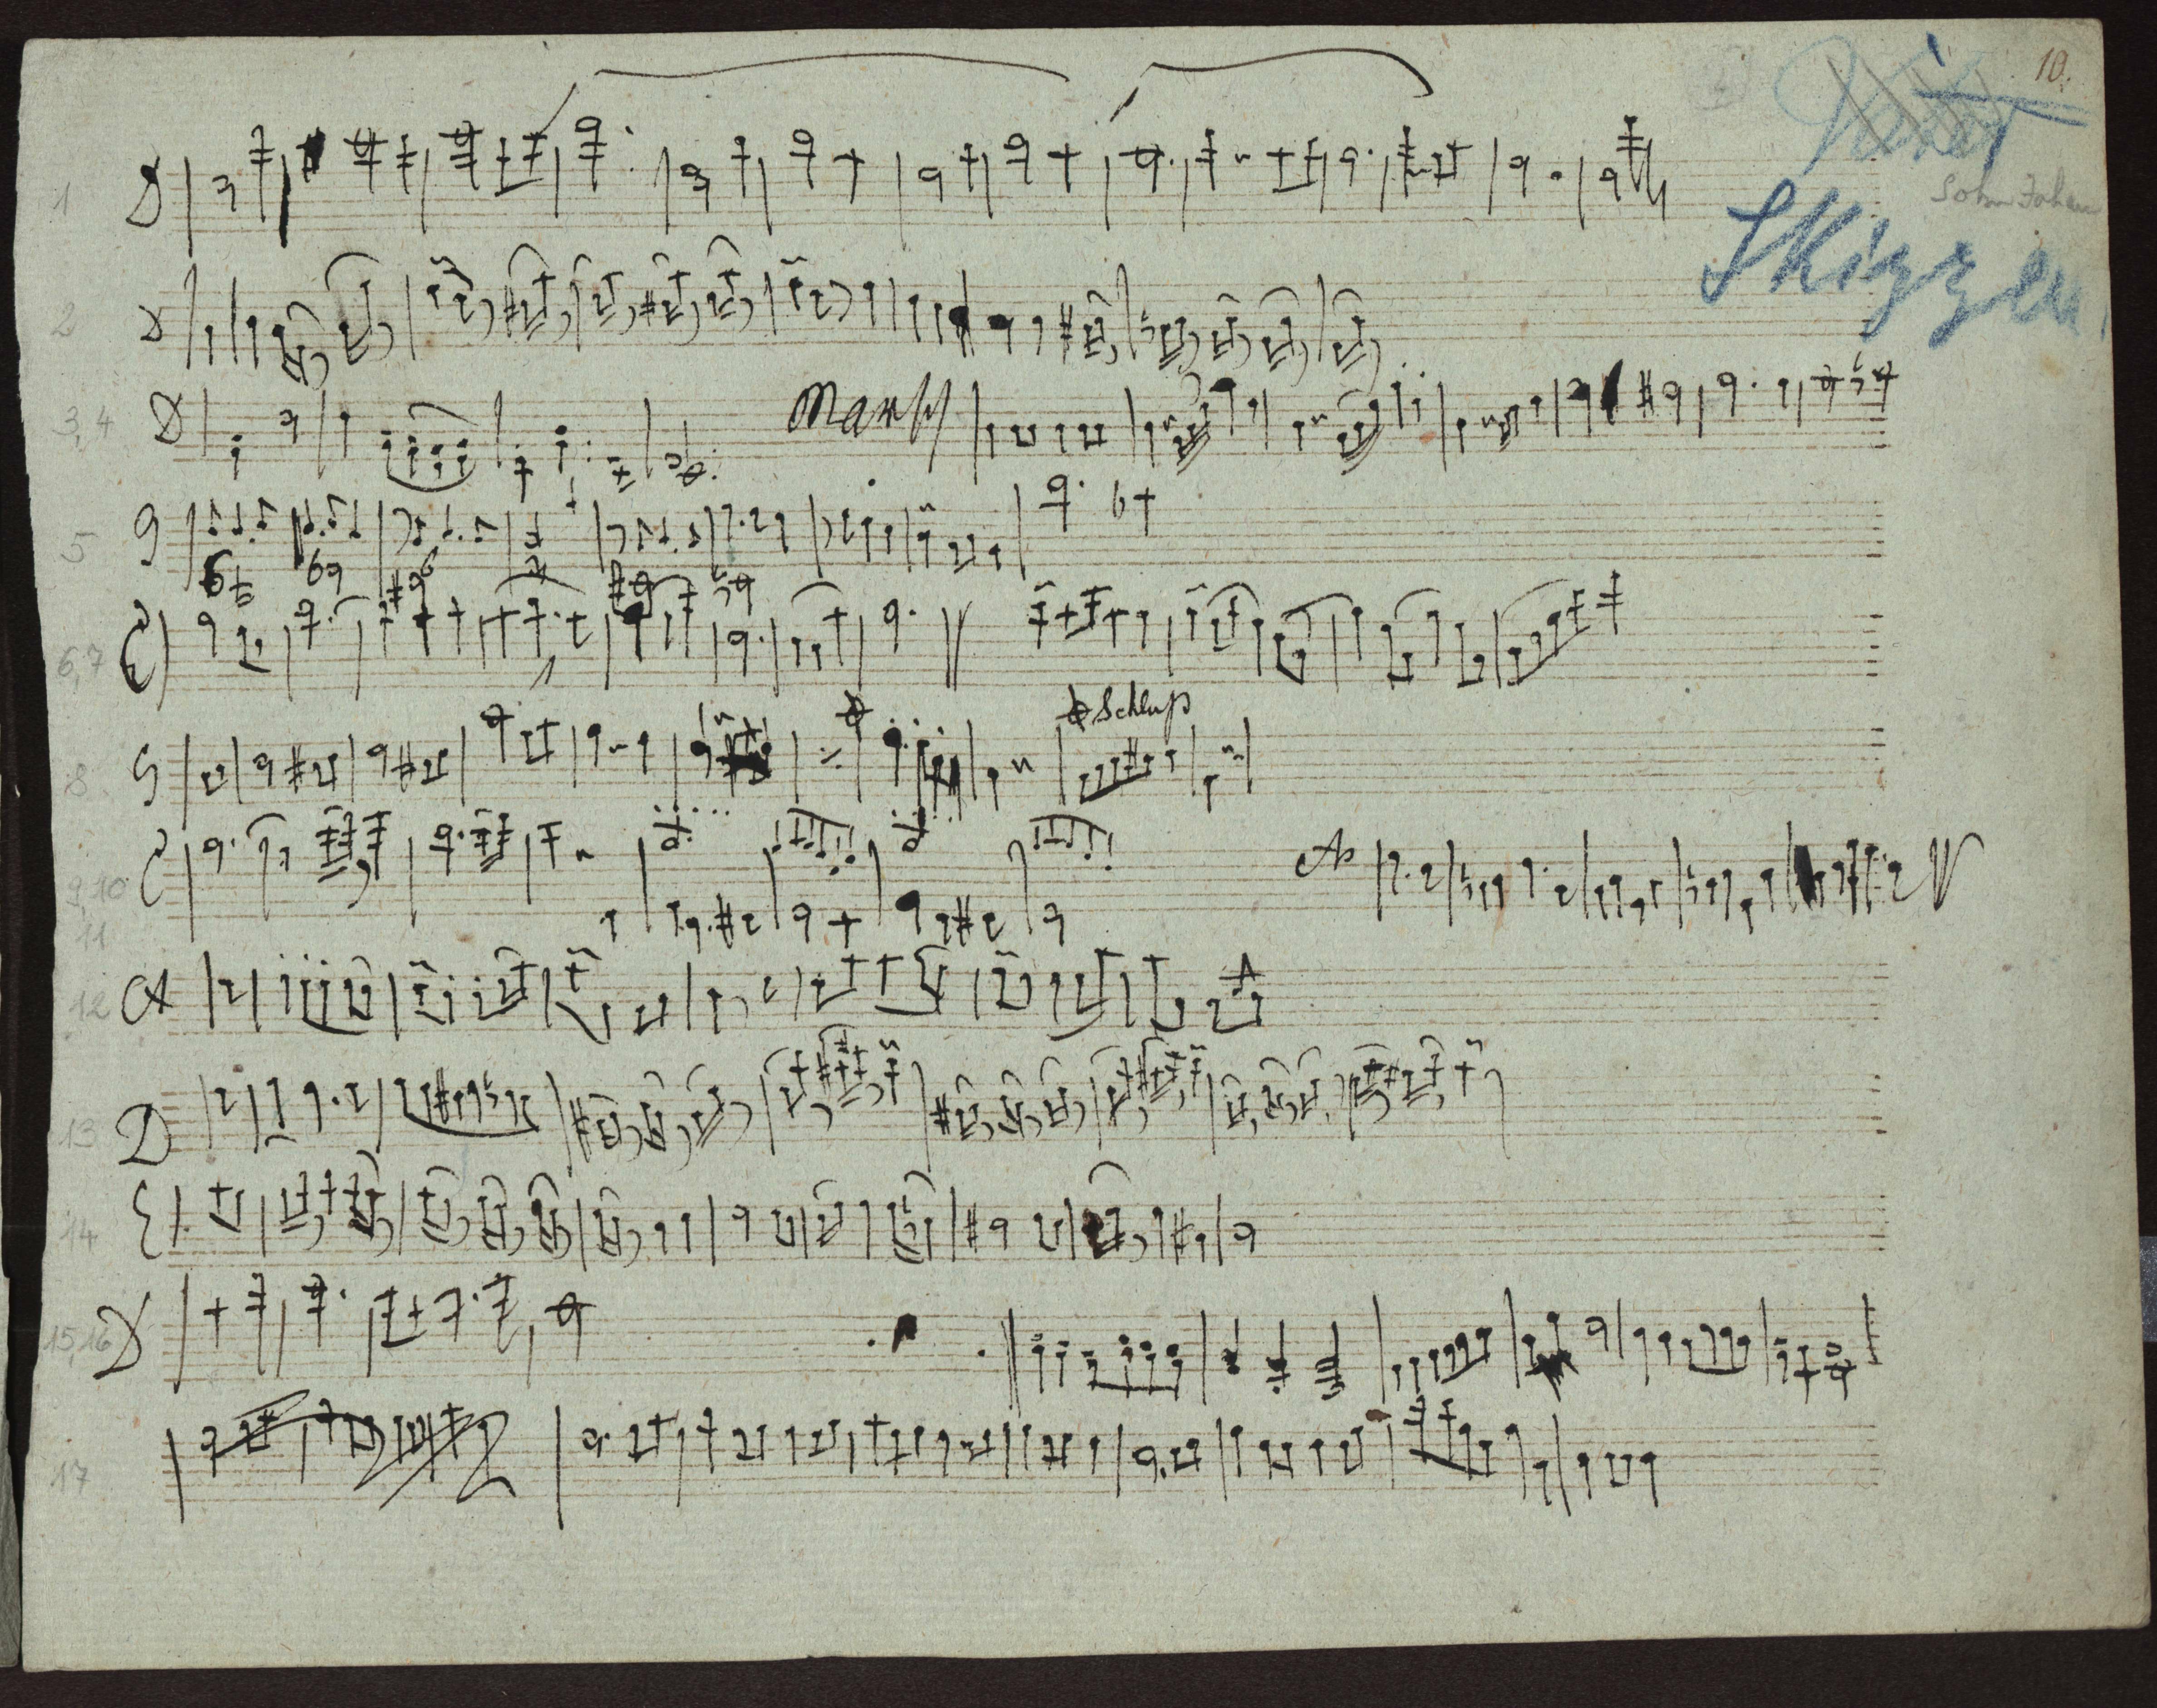 10.
Skizzen
1
D
2
D
3, 4
D
Marsch
5
G
6, 7
C
8
G
Schluß
9, 10
C
As
11
12
A
13
D
14
E
15, 16
D
17